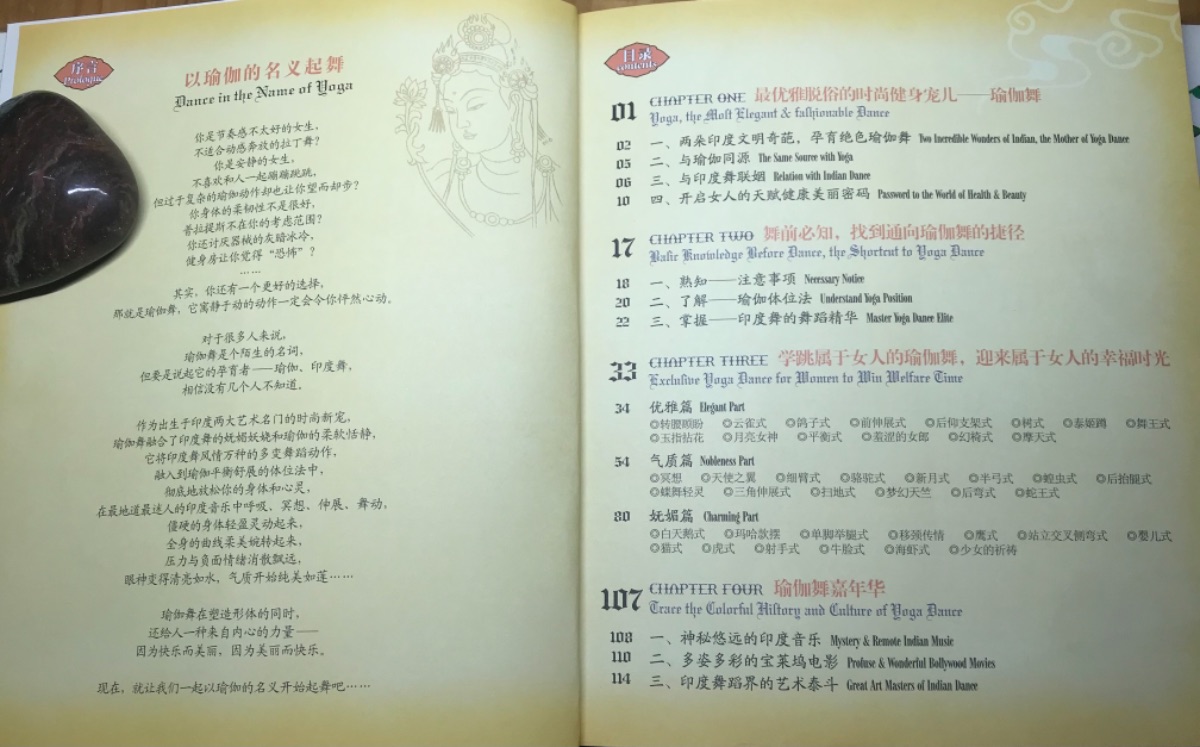 序言
Prologue
以瑜伽的名义起舞
Dance in the Name of Yoga
你是节奏感不太好的女生，
不适合动感奔放的拉丁舞？
你是安静的女生，
不喜欢和人一起蹦蹦跳跳，
但过于复杂的瑜伽动作却也让你望而却步？
你身体的柔韧性不是很好，
普拉提斯不在你的考虑范围？
你还讨厌器械的灰暗冰冷，
健身房让你觉得“恐怖”？
……
其实，你还有一个更好的选择，
那就是瑜伽舞，它寓静于动的动作一定会令你怦然心动。
对于很多人来说，
瑜伽舞是个陌生的名词，
但要是说起它的孕育者——瑜伽、印度舞，
相信没有几个人不知道。
作为出生于印度两大艺术名门的时尚新宠，
瑜伽舞融合了印度舞的妩媚妖娆和瑜伽的柔软恬静，
它将印度舞风情万种的多变舞蹈动作，
融入到瑜伽平衡舒展的体位法中，
彻底地放松你的身体和心灵，
在最地道最迷人的印度音乐中呼吸、冥想、伸展、舞动，
僵硬的身体轻盈灵动起来，
全身的曲线柔美婉转起来，
压力与负面情绪消散飘远，
眼神变得清亮如水，气质开始纯美如莲……
瑜伽舞在塑造形体的同时，
还给人一种来自内心的力量——
因为快乐而美丽，因为美丽而快乐。
现在，就让我们一起以瑜伽的名义开始起舞吧……
目录
contents
01 CHAPTER ONE 最优雅脱俗的时尚健身宠儿——瑜伽舞
Yoga, the Most Elegant & fashionable Dance
02 一、两朵印度文明奇葩，孕育绝色瑜伽舞 Two Incredible Wonders of Indian, the Mother of Yoga Dance
05 二、与瑜伽同源 The Same Source with Yoga
06 三、与印度舞联姻 Relation with Indian Dance
10 四、开启女人的天赋健康美丽密码 Password to the World of Health & Beauty
17 CHAPTER TWO 舞前必知，找到通向瑜伽舞的捷径
Basic Knowledge Before Dance, the Shortcut to Yoga Dance
18 一、熟知——注意事项 Necessary Notice
20 二、了解——瑜伽体位法 Understand Yoga Position
22 三、掌握——印度舞的舞蹈精华 Master Yoga Dance Elite
33 CHAPTER THREE 学跳属于女人的瑜伽舞，迎来属于女人的幸福时光
Exclusive Yoga Dance for Women to Win Welfare Time
34 优雅篇 Elegant Part
◎转腰顾盼 ◎云雀式 ◎鸽子式 ◎前伸展式 ◎后仰支架式 ◎树式 ◎泰姬蹲 ◎舞王式
◎玉指拈花 ◎月亮女神 ◎平衡式 ◎羞涩的女郎 ◎幻椅式 ◎摩天式
54 气质篇 Nobleness Part
◎冥想 ◎天使之翼 ◎细臂式 ◎骆驼式 ◎新月式 ◎半弓式 ◎蝗虫式 ◎后抬腿式
◎蝶舞轻灵 ◎三角伸展式 ◎扫地式 ◎梦幻天竺 ◎后弯式 ◎蛇王式
80 妩媚篇 Charming Part
◎白天鹅式 ◎玛哈款摆 ◎单脚举腿式 ◎移颈传情 ◎鹰式 ◎站立交叉侧弯式 ◎婴儿式
◎猫式 ◎虎式 ◎射手式 ◎牛脸式 ◎海虾式 ◎少女的祈祷
107 CHAPTER FOUR 瑜伽舞嘉年华
Trace the Colorful History and Culture of Yoga Dance
108 一、神秘悠远的印度音乐 Mystery & Remote Indian Music
110 二、多姿多彩的宝莱坞电影 Profuse & Wonderful Bollywood Movies
114 三、印度舞蹈界的艺术泰斗 Great Art Masters of Indian Dance